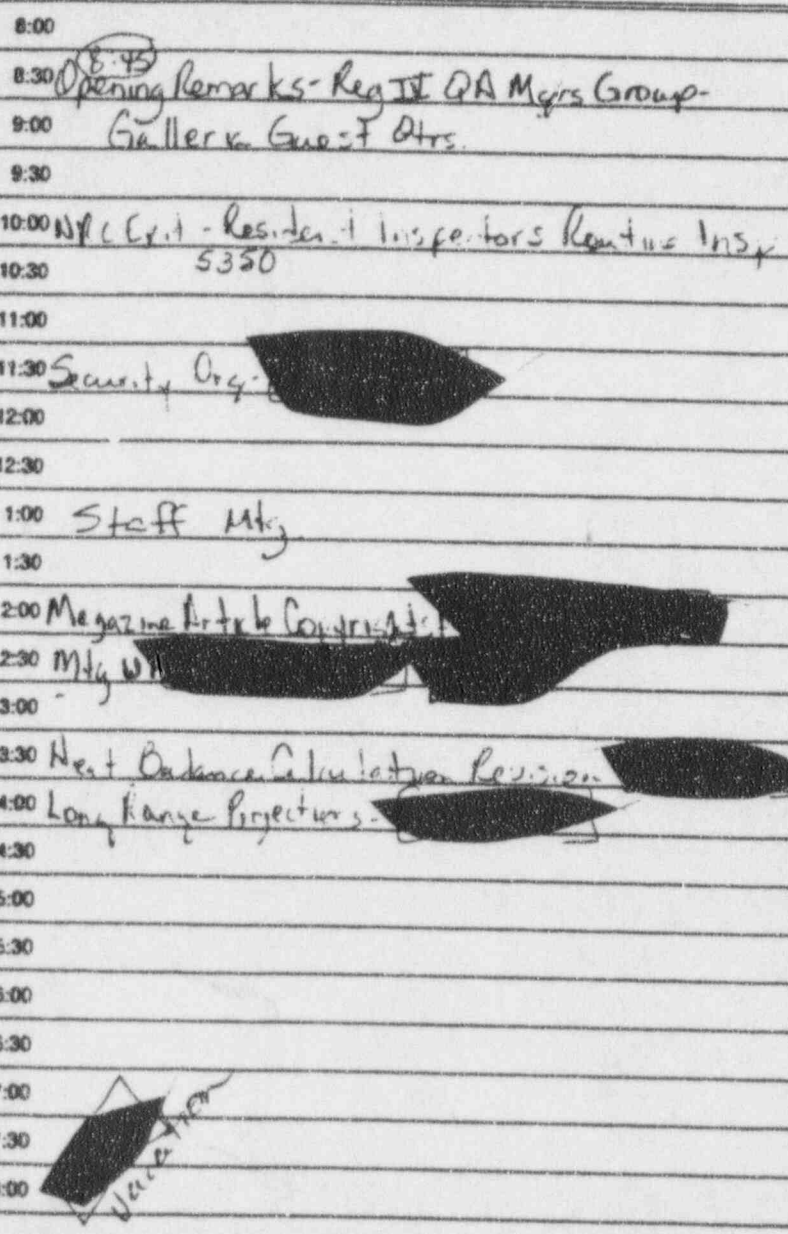 8:00
8:45
8:30 Opening Remarks - Reg IV QA Mgrs Group -
9:00 Galleria Guest Qtrs.
9:30
10:00 NRC Exit - Resident Inspectors Routine Insp
5350
10:30
11:00
11:30 Security Org -
12:00
12:30
1:00 Staff Mtg
1:30
2:00 Magazine Article Copyright
2:30 Mtg w/
3:00
3:30 Heat Balance Calculation Revision
4:00 Long Range Projections -
4:30
5:00
5:30
6:00
6:30
7:00
7:30
8:00
Vacation